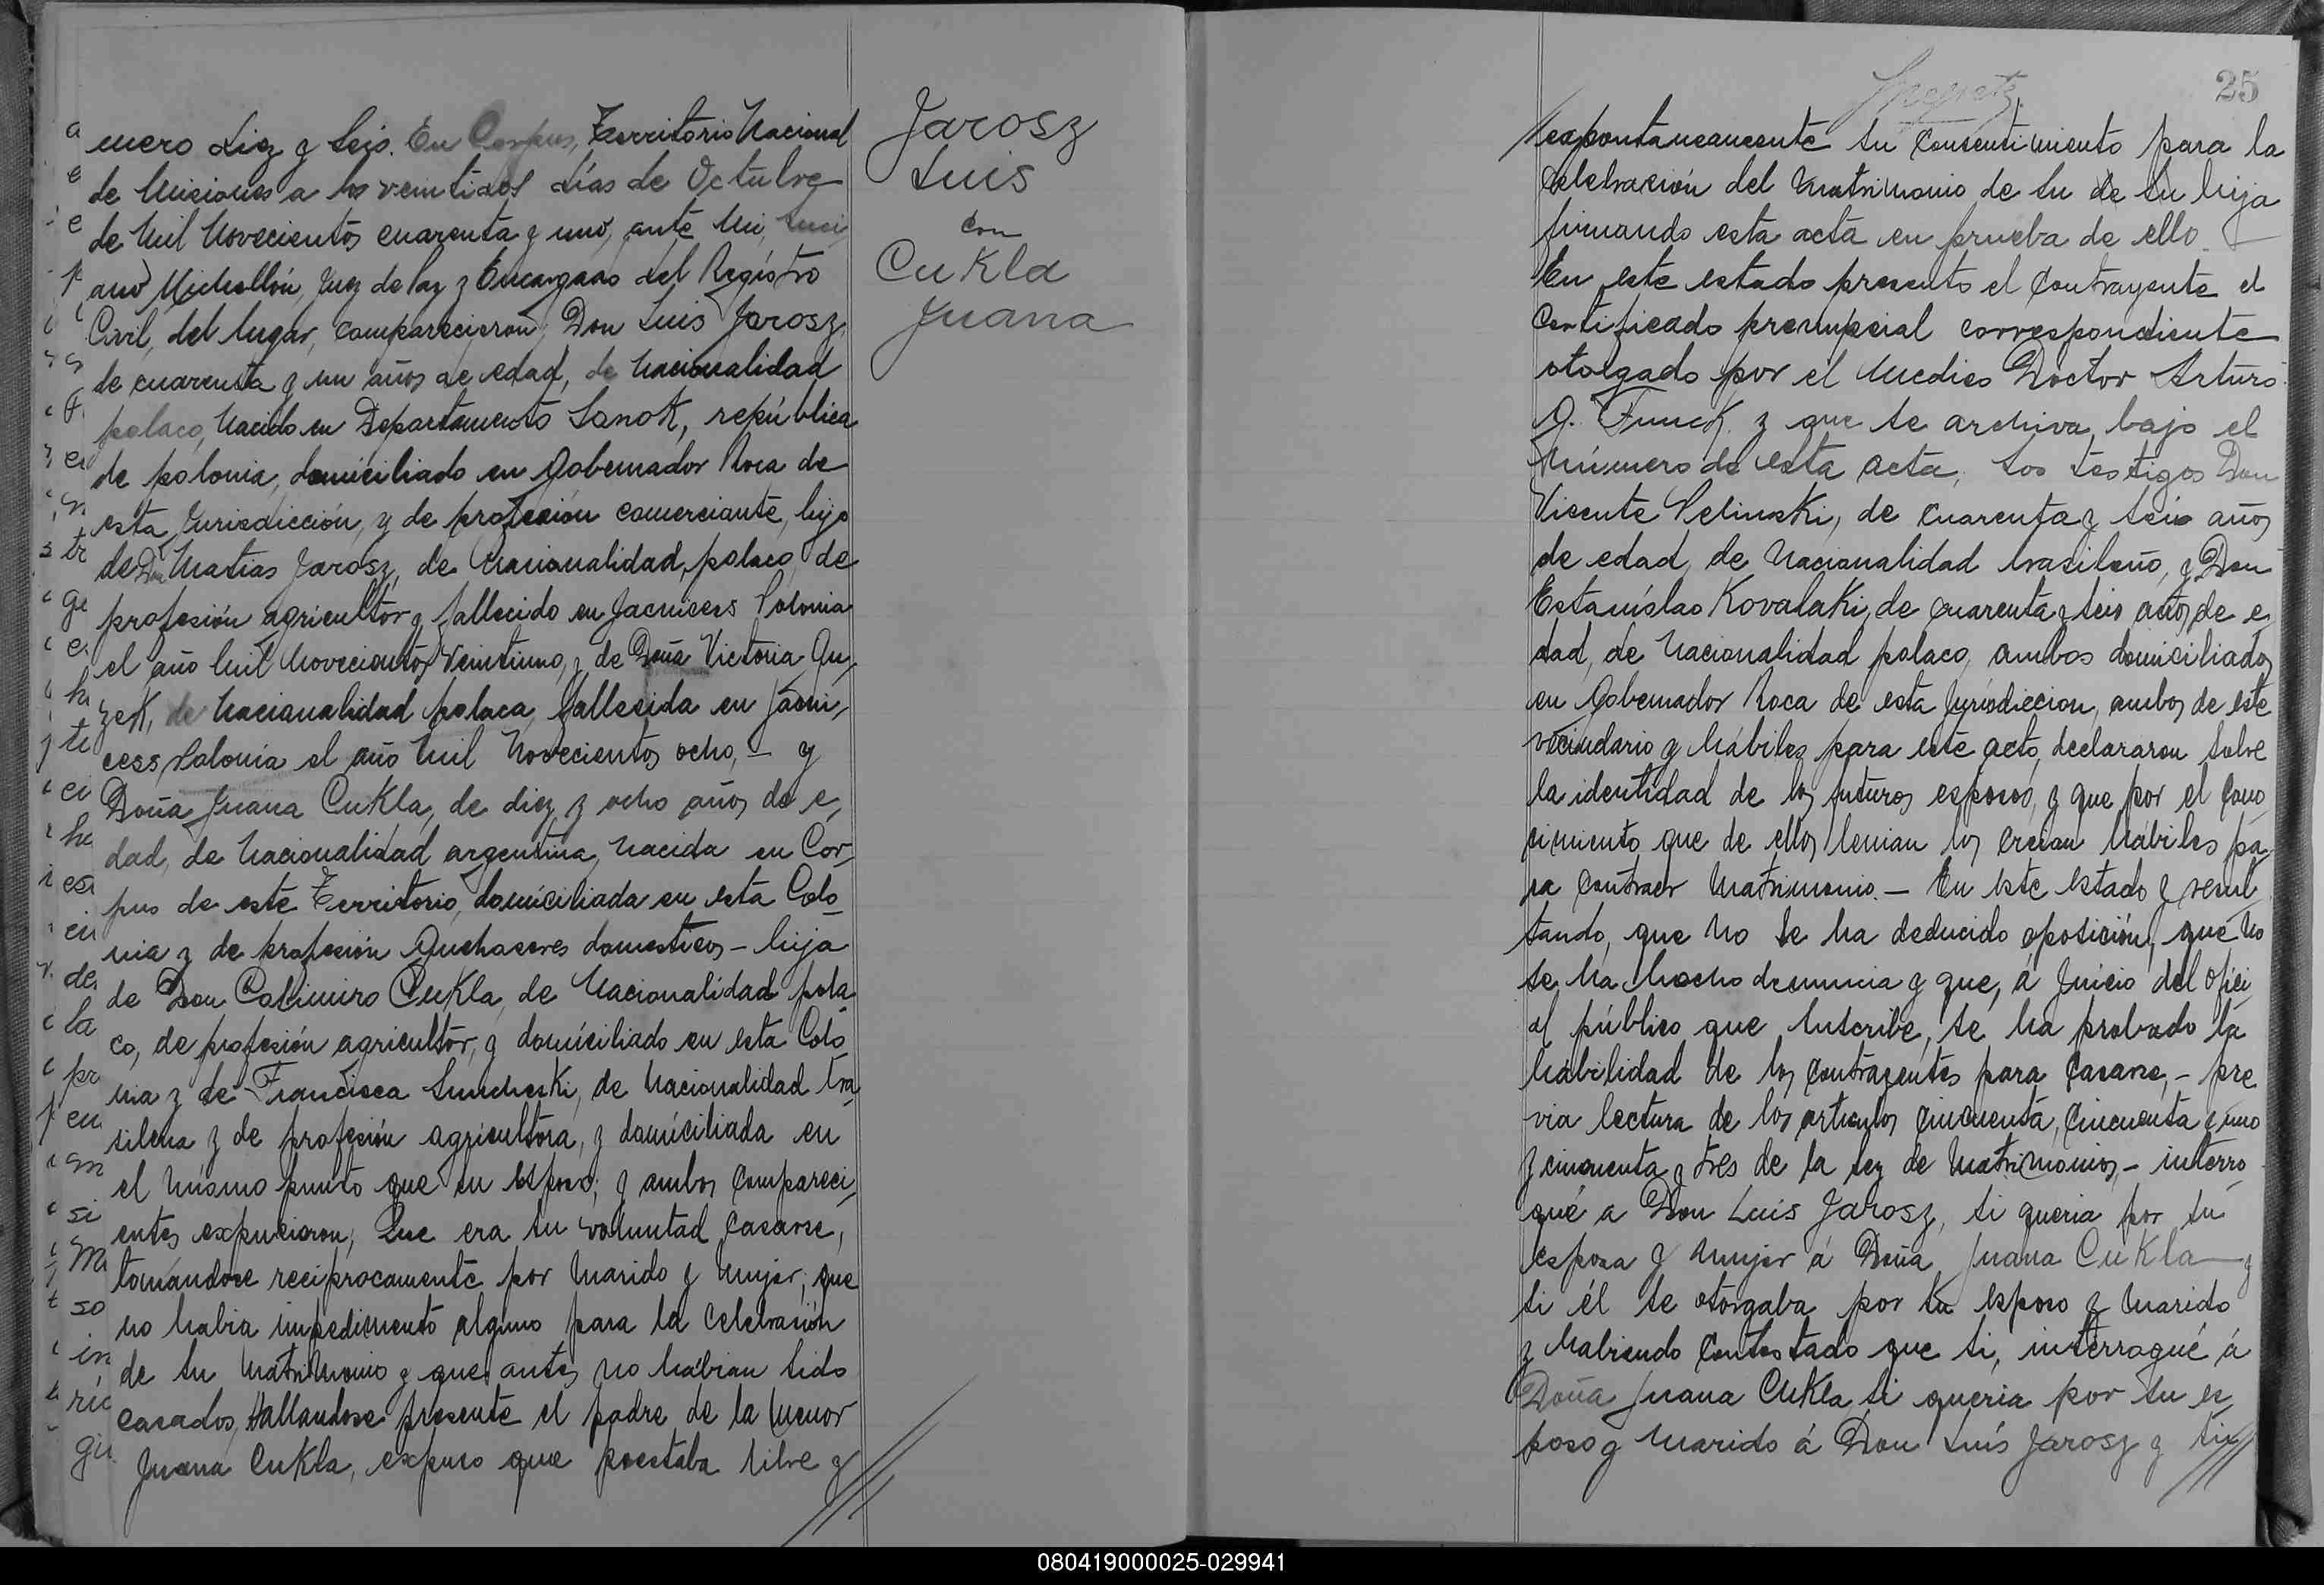 mero diez y seis. En Corpus, Territorio Nacional
de Misiones a los veintidos días de Octubre
de Mil Novecientos cuarenta y uno, ante Mi, Luci
ano Michellón, Juez de Paz y Encargado del Registro
Civil, del lugar, comparecieron, Don Luis Jarosz,
de cuarenta y un años de edad, de Nacionalidad
polaco, Nacido en Departamento Sanok, república
de polonia, domiciliado en Gobernador Roca de
esta Jurisdicción, y de profesión comerciante, hijo
de Don Matias Jarosz, de Nacionalidad, polaco, de
profesión agricultor y fallecido en Polonia
el año Mil Novecientos Veintiuno, y de Doña Victoria Gu,
zek, de Nacionalidad polaca, fallecida en Jacni,
cess, Polonia el año Mil Novecientos ocho, – y
Doña Juana Cukla, de diez y ocho años de e,
dad, de Nacionalidad argentina, Nacida en Cor,
pus de este Territorio, domiciliada en esta Colo
nia y de profesión Quehaseres domesticos – hija
de Don Casimiro Cukla, de Nacionalidad pola
co, de profesión agricultor, y domiciliado en esta Colo
nia y de Francisca de Nacionalidad bra
silena y de profesión agricultora, y domiciliada en
el Mismo punto que su esposo; y ambos Compareci,
entes expucieron; Que era su voluntad Casarse,
tomándose reciprocamente por Marido y Mujer; que
no habia impedimento alguno para la Celebración
de su Matrimonio y que antes no habian sido
casados, Hallandose presente el padre de la Menor
Juana Cukla, expuso que prestaba libre y
Jarosz
Luis
con
Cukla
Juana
25
expontaneamente su Consentimiento para la
Celebración del Matrimonio de su de su hija
firmando esta acta en prueba de ello.
En este estado presento el Contrayente el
Certificado prenupcial correspondiente
otolgado por el Medico Doctor Arturo
G. Funck. y que se archiva bajo el
Número de esta acta, Los testigos Don
Vicente Selinski, de Cuarenta y seis años
de edad, de Nacionalidad brasileño, y Don
Estanislao Kovalaki, de cuarenta y seis años de e,
dad, de Nacionalidad polaco, ambos domiciliados
en Gobernador Roca de esta Jurisdiccion, ambos de este
vecindario y hábiles para este acto, declararon Sobre
la identidad de los futuros esposos, y que por el Cono
cimiento que de ellos tenian los creian hábiles pa
ra Contraer Matrimonio. – En este estado y resul
tando, que No se ha deducido oposición, que No
se ha hecho denuncia y que, á Juicio del Ofici,
al público que Suscribe, se ha probado la
habilidad de los Contrayentes para Casarse, – pre
via lectura de los articulos Cincuenta, Cincuenta y uno
y cincuenta y tres de la Ley de Matrimonios, – interro
gué a Don Luis Jarosz, si queria por su
esposa y Mujer á Doña Juana Cukla y
si él se otorgaba por su esposo y Marido
y habiendo Contestado que si, interrogué á
Doña Juana Cukla, si queria por su es,
poso y Marido á Don Luis Jarosz y si
080419000025-029941